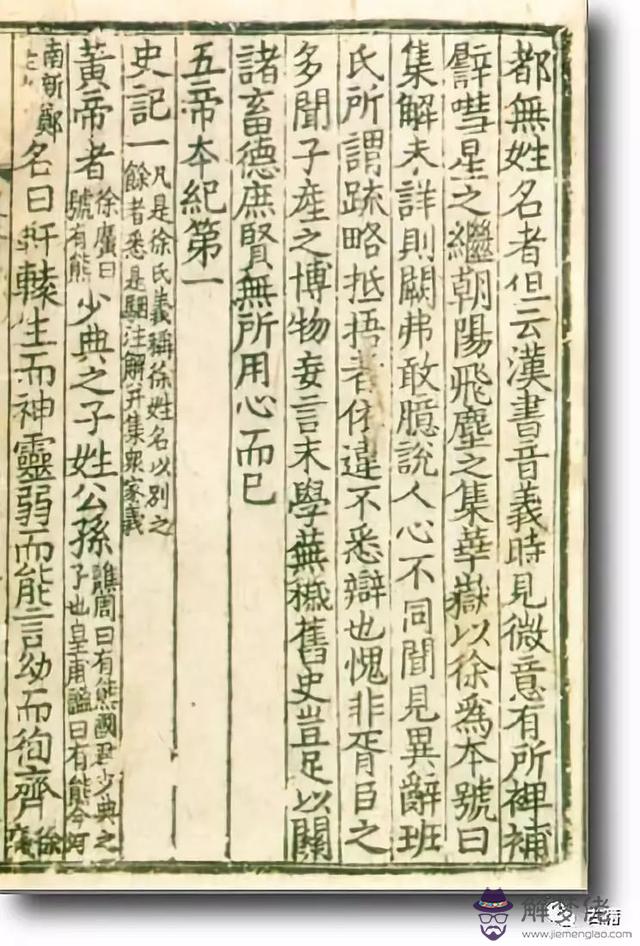 都無姓名者但云漢書音義時見微意有所裨補
譬嘒星之繼朝陽飛塵之集華嶽以徐爲本號曰
集解未詳則闕弗敢臆說人心不同聞見異辭班
氏所謂踈略抵捂者依違不悉辯也愧非胥臣之
多聞子產之博物妄言末學蕪穢舊史豈足以關
諸畜德庶賢無所用心而已
五帝本紀第一
史記一 凡是徐氏義稱徐姓名以別之餘者悉是駰注解并集眾家義
黃帝者 徐廣曰號有熊 少典之子姓公孫 譙周曰有熊國君少典之子也皇甫謐曰有熊今河
南新鄭 名曰軒轅生而神靈弱而能言幼而徇齊 徐
解梦佬
www.jiemenglao.com